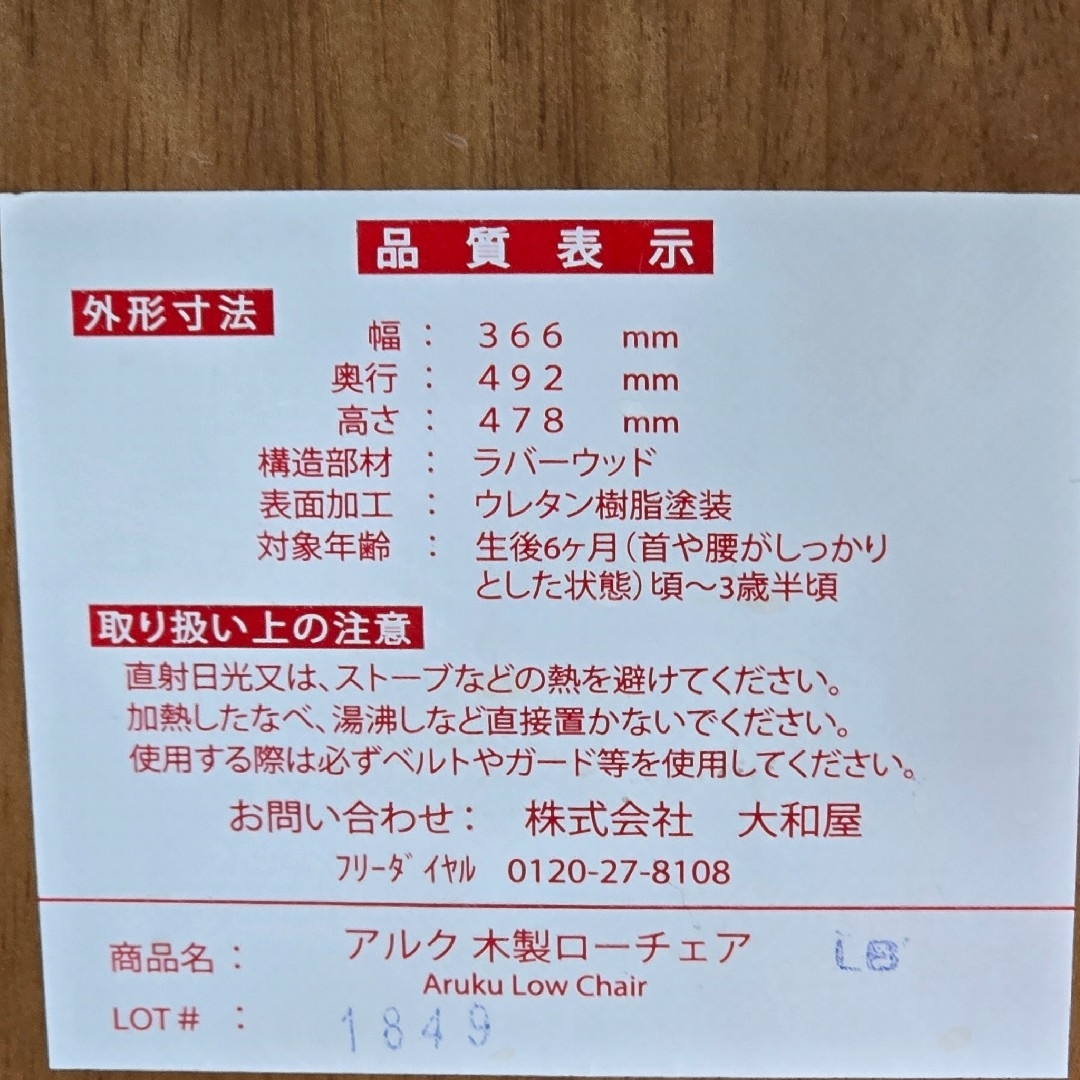 品質表示
外形寸法
幅 : 366 mm
奥行 : 492 mm
高さ : 478 mm
構造部材 : ラバーウッド
表面加工 : ウレタン樹脂塗装
対象年齢 : 生後6ヶ月(首や腰がしっかり
とした状態)頃〜3歳半頃
取り扱い上の注意
直射日光又は、ストーブなどの熱を避けてください。
加熱したなべ、湯沸しなど直接置かないでください。
使用する際は必ずベルトやガード等を使用してください。
お問い合わせ: 株式会社 大和屋
フリーダイヤル 0120-27-8108
商品名: アルク 木製ローチェア LB
Aruku Low Chair
LOT# : 1849